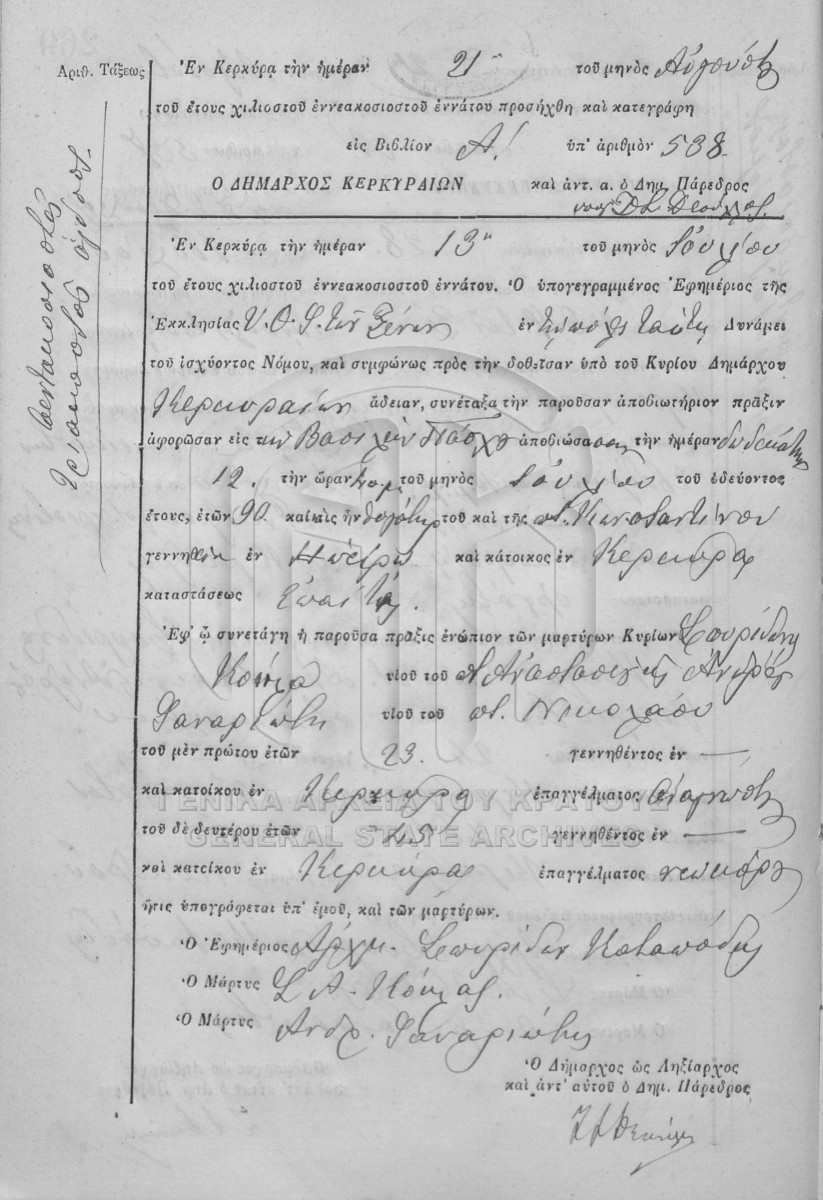 Ἀριθ. Τάξεως
πεντακοσιοστὸς
τριακοστὸς ὄγδοος
Ἐν Κερκύρᾳ τὴν ἡμέραν 21 τοῦ μηνὸς Αὐγούστου
τοῦ ἔτους χιλιοστοῦ ἐννεακοσιοστοῦ ἐννάτου προσήχθη καὶ κατεγράφη
εἰς Βιβλίον Α! ὑπ' ἀριθμὸν 538
Ο ΔΗΜΑΡΧΟΣ ΚΕΡΚΥΡΑΙΩΝ καὶ ἀντ. α. ὁ Δημ. Πάρεδρος
Ἐν Κερκύρᾳ τὴν ἡμέραν 13 τοῦ μηνὸς Ἰουλίου
τοῦ ἔτους χιλιοστοῦ ἐννεακοσιοστοῦ ἐννάτου. Ὁ ὑπογεγραμμένος Ἐφημέριος τῆς
Ἐκκλησίας Υ. Θ. τῶν Ξένων ἐν τῇ πόλει ταύτῃ Δυνάμει
τοῦ ἰσχύοντος Νόμου, καὶ συμφώνως πρὸς τὴν δοθεῖσαν ὑπὸ τοῦ Κυρίου Δημάρχου
Κερκυραίων ἄδειαν, συνέταξα τὴν παροῦσαν ἀποβιωτήριον πρᾶξιν
ἀφορῶσαν εἰς τὴν Βασιλικὴν ἀποβιώσασαν τὴν ἡμέραν δωδεκάτην
12. τὴν ὥραν τοῦ μηνὸς Ἰουλίου τοῦ ὁδεύοντος
ἔτους, ἐτῶν 90 καὶ ἥτις ἦν θυγάτηρ τοῦ καὶ τῆς π. Κωνσταντίνου
γεννηθεῖσα ἐν Ἠπείρῳ καὶ κάτοικος ἐν Κερκύρᾳ
καταστάσεως ἐπαίτις.
Ἐφ' ᾧ συνετάγη ἡ παροῦσα πρᾶξις ἐνώπιον τῶν μαρτύρων Κυρίων Σπυρίδων
Κόκλα υἱοῦ τοῦ π. Ἀναστασίου καὶ Ἀνδρέα
Φαναριώτη υἱοῦ τοῦ π. Νικολάου
τοῦ μὲν πρώτου ἐτῶν 23 γεννηθέντος ἐν —
καὶ κατοίκου ἐν Κερκύρᾳ ἐπαγγέλματος ἀναγνώστου
τοῦ δὲ δευτέρου ἐτῶν 45 γεννηθέντος ἐν —
καὶ κατοίκου ἐν Κερκύρᾳ ἐπαγγέλματος νεωκόρου
ἥτις ὑπογράφεται ὑπ' ἐμοῦ, καὶ τῶν μαρτύρων.
Ὁ Ἐφημέριος Ἀρχιμ. Σπυρίδων Καταπόδης
Ὁ Μάρτυς Σ. Α. Κόκλας.
Ὁ Μάρτυς Ἀνδρ. Φαναριώτης
Ὁ Δήμαρχος ὡς Ληξίαρχος
καὶ ἀντ' αὐτοῦ ὁ Δημ. Πάρεδρος
ΓΕΝΙΚΑ ΑΡΧΕΙΑ ΤΟΥ ΚΡΑΤΟΥΣ
GENERAL STATE ARCHIVES